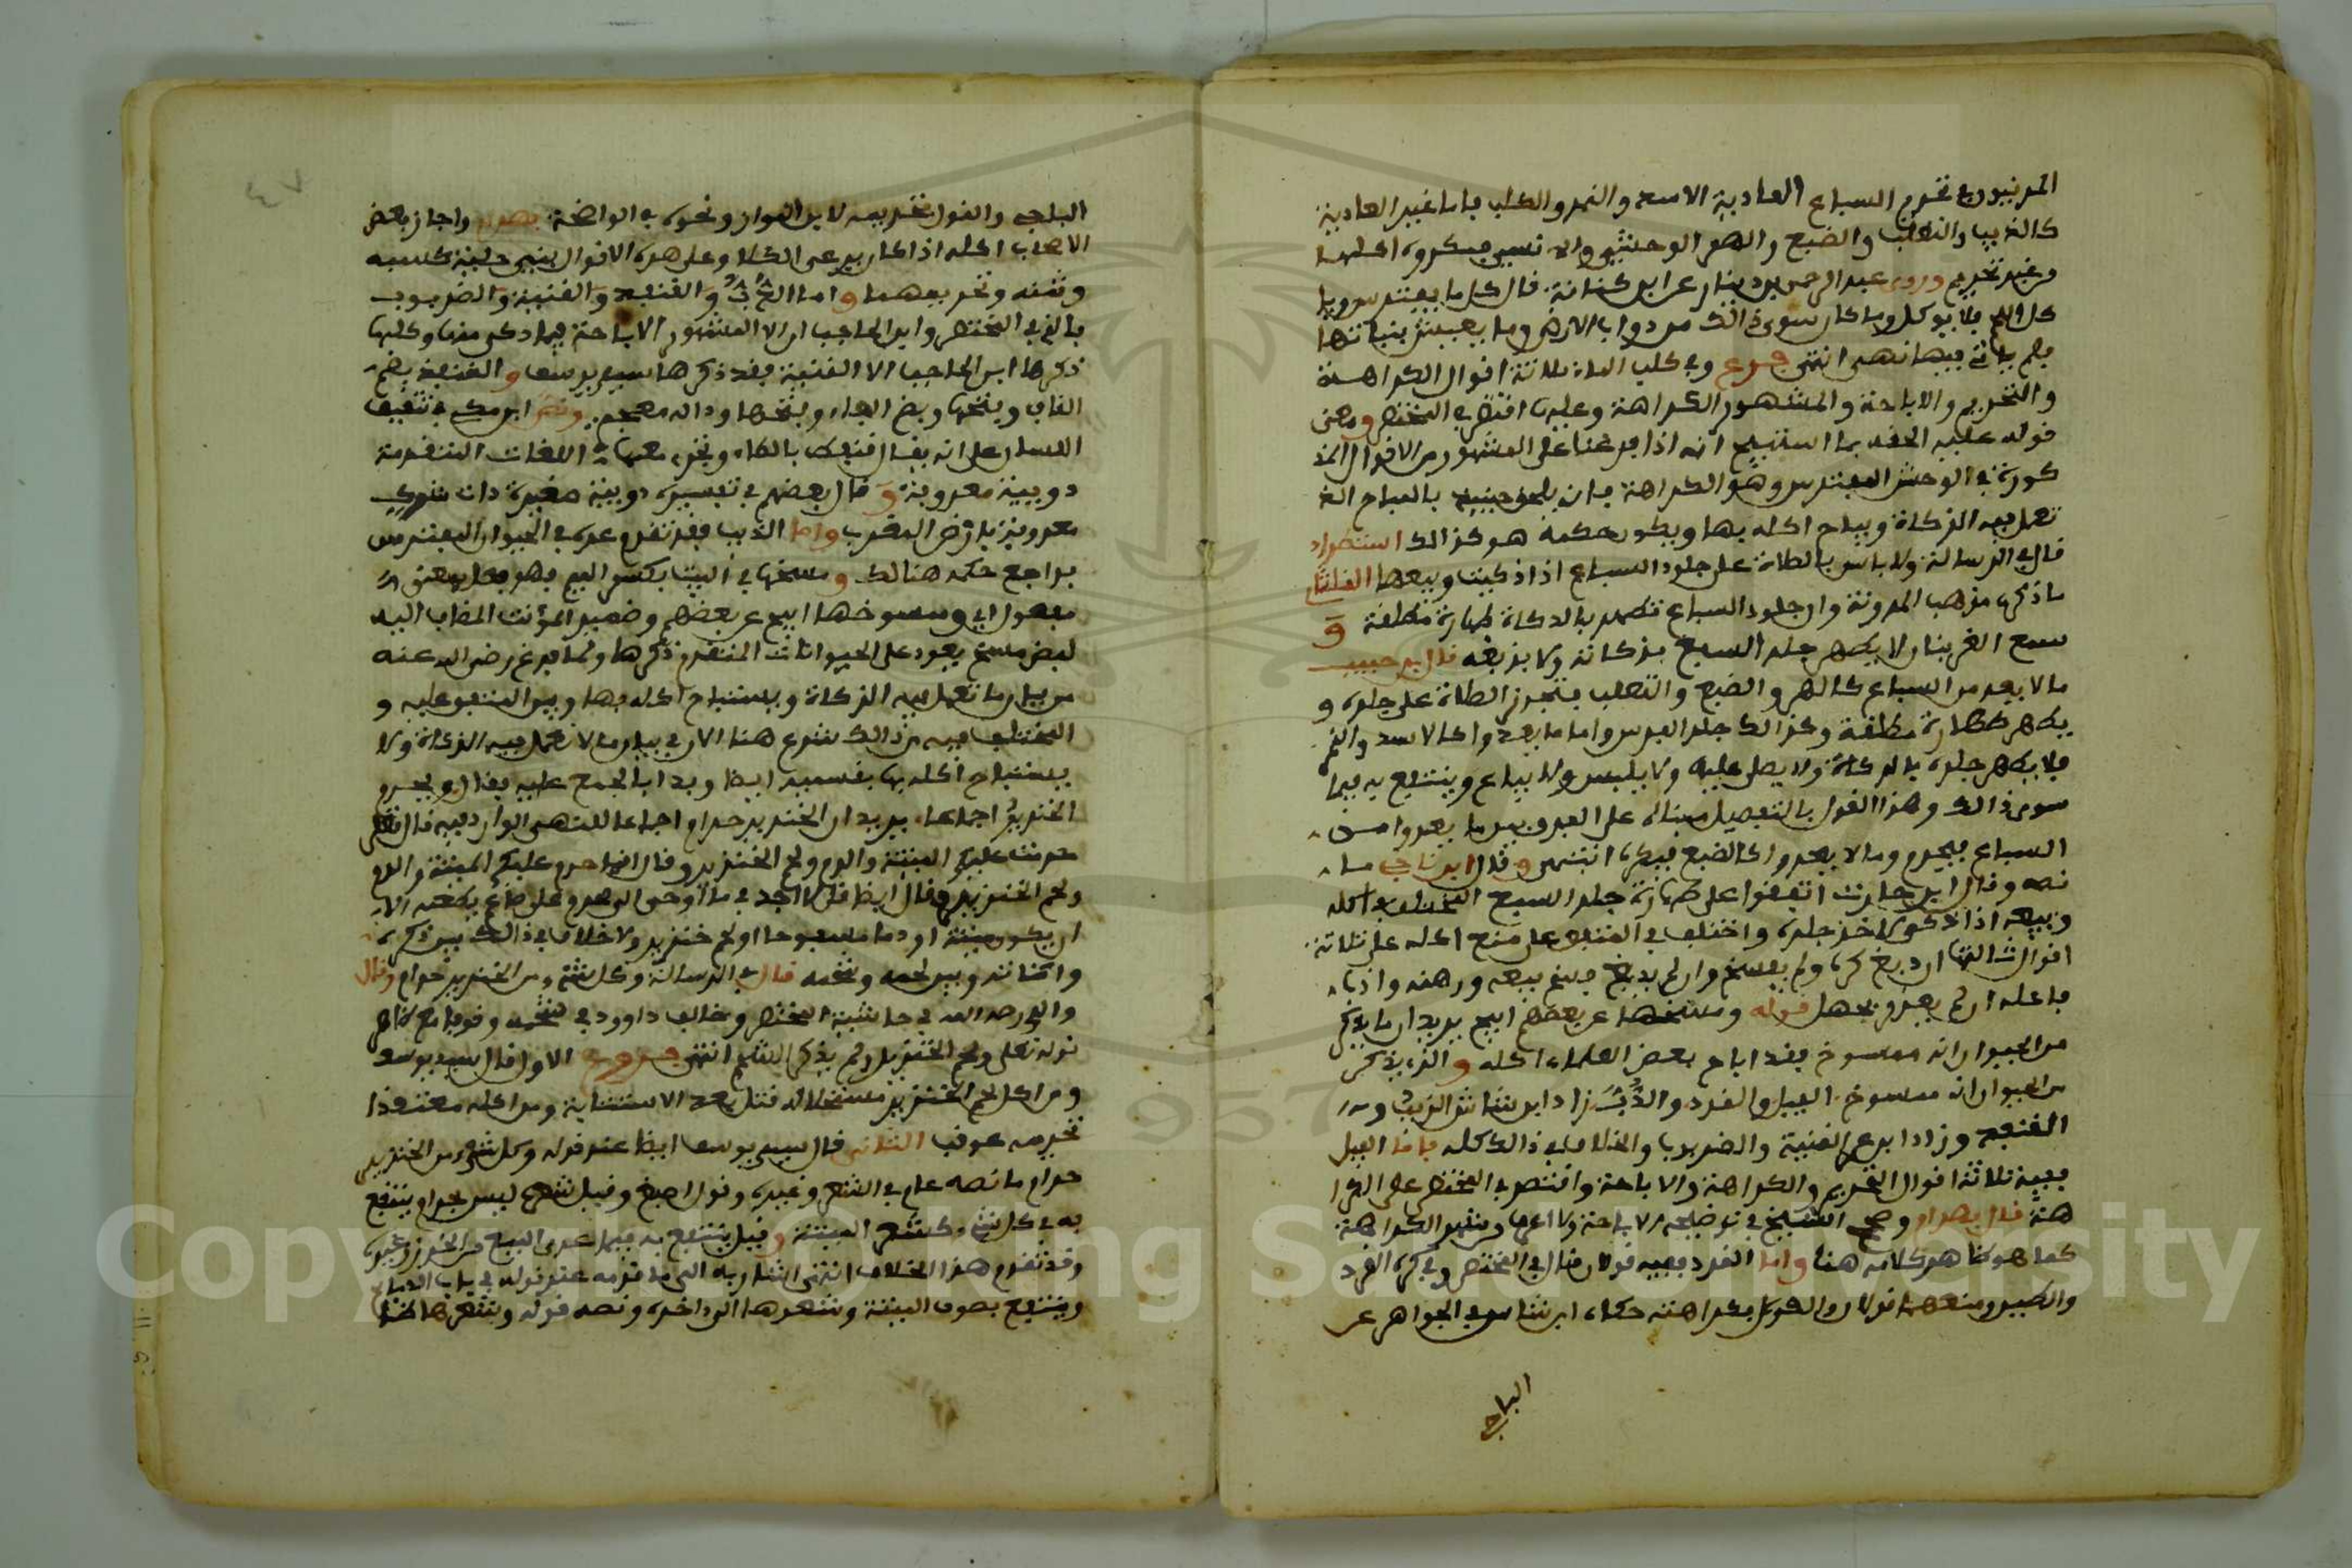 المدنيون في تحريم السباع العادية الاسد والنمر والكلب فاما غير العادية
كالذيب والثعلب والضبع والهر الوحشي والانسي فيكره اكلها
من غير تحريم وروى عبد الرحمن بن دينار عن ابن كنانة قال كل ما يفترس ويا
كل اللحم فلا يوكل وما كان سوى ذالك من دواب الارض وما يعيش بنباتها
فلم يات فيها نهي انتهى فرع وفي كلب الماء ثلاثة اقوال الكراهة
والتحريم والاباحة والمشهور الكراهة وعليها اقتصر في المختصر ومعنى
قوله عليه الحقه بما استبيح انه اذا فرعنا على المشهور من الاقوال المذ
كورة في الوحش المفترس وهو الكراهة فانه يلحق حينئذ بالمباح الذ
تعمل فيه الزكاة ويباح اكله بها ويكون حكمه هو كذالك استطراد
قال في الرسالة ولا باس بالصلاة على جلود السباع اذا ذكيت وبيعها القلشاني
ما ذكره مذهب المدونة وان جلود السباع تطهر بالذكاة طهارة مطلقة و
سمع القرينان لا يطهر جلد السبع بذكاته ولا بدبغه قال ابن حبيب
ما لا يعد من السباع كالهر والضبع والثعلب فتجوز الصلاة على جلده و
يطهر طهارة مطلقة وكذالك جلد الفرس واما ما يعدوا كالاسد والنمر
فلا يطهر جلده بالذكاة ولا يصلى عليه ولا يلبس ولا يباع وينتفع به فيما
سوى ذالك وهذا القول بالتفصيل مبناه على الفرق بين ما يعدوا من
السباع فيحرم وما لا يعدوا كالضبع فيكره انتهى وقال ابن ناجي ما
نصه وقال ابن حارث اتفقوا على طهارة جلد السبع المختلف في اكله
وبيعه اذا ذكي لاخذ جلده واختلف في المتفق على منع اكله على ثلاثة
اقوال ثالثها ان دبغ كره ولم يفسخ وان لم يدبغ فسخ بيعه ورهنه وادب
فاعله ان لم يعذر بجهل قوله ومسخها عن بعضهم ابيح يريد ان ما يذكر
من الحيوان انه ممسوخ فقد اباح بعض العلماء اكله والذي يذكر
من الحيوان انه ممسوخ الفيل والقرد والدب زاد ابن شاس الزيب و
القنفد وزاد ابن ع القنية والضربوب والخلاف في ذالك كله فاما الفيل
ففيه ثلاثة اقوال التحريم والكراهة والاباحة واقتصر في المختصر على الكرا
هة قال بهرام وصحح الشيخ في توضيحه الاباحة ولا اعرف من شهر الكراهة
كما هو ظاهر كلامه هنا واما القرد ففيه قولان قال في المختصر وفي كره القرد
والطيبر ومنعهما قولان والقول بكراهته حكاه ابن شاس في الجواهر عن
الباجي
٤٧
الباجي والقول بتحريمه لابن المواز ونحوه في الواضحة بهرام واجاز بعض
الاصحاب اكله اذا كان يرعى الكلا وعلى هذه الاقوال ينبني حلية كسبه
وثمنه وتحريمهما واما الخز والقنفد والقنية والضربوب
فالذي في المختصر وابن الحاجب ان المشهور الاباحة فيما ذكر منها وكلها
ذكرها ابن الحاجب الا القنية فقد ذكرها سيد يوسف والقنفد بضم
القاف وبفتحها وبضم الفاء وبفتحها وداله معجم ونص ابن مكي في تثقيف
اللسان على انه يقال قنفط بالطاء ونحوه معها في اللغات المتقدمة
دويبة معروفة و قال بعضهم في تفسيره دويبة صغيرة ذات شوك
معروفة بارض المغرب واما الذيب فقد تقدم عده في الحيوان المفترس
فراجع حكمه هنالك ومسخها في البيت بكسر الميم فهو فعل بمعنى
مفعول اي وممسوخها ابيح عن بعضهم وضمير المؤنث المضاف اليه
لفظ مسخ يعود على الحيوانات المتقدم ذكرها ولما فرغ رضي الله عنه
من بيان ما تعمل فيه الزكاة ويستباح اكله بها وبين المتفق عليه و
المختلف فيه من ذالك شرع هنا الان في بيان ما لا تعمل فيه الزكاة ولا
يستباح اكله بها بقسميه ايضا وبدا بالمجمع عليه فقال ويحرم
الخنزير اجماعا يريد ان الخنزير حرام اجماعا للنهي الوارد فيه قال تعلى
حرمت عليكم الميتة والدم ولحم الخنزير وقال انما حرم عليكم الميتة والدم
ولحم الخنزير وقال ايضا قل لا اجد في ما اوحي الي محرما على طاعم يطعمه الا
ان يكون ميتة او دما مسفوحا او لحم خنزير ولا خلاف في ذالك بين ذكره
وانثاه وبين لحمه وشحمه قال في الرسالة وكل شيء من الخنزير حرام وقال
والدي رحمه الله في حاشية المختصر وخالف داوود في شحمه وقوفا مع ظاهر
قوله تعلى ولحم الخنزير ولم يذكر الشحم انتهى فروع الاول قال سيد يوسف
ومن اكل لحم الخنزير مستحلا له قتل بعد الاستتابة ومن اكله معتقدا
تحريمه عوقب الثاني قال سيد يوسف ايضا عند قوله وكل شيء من الخنزير
حرام ما نصه عام في الشعر وغيره وقول اصبغ وقيل شعره ليس بحرام ينتفع
به في كل شيء كشعر الميتة وقيل ينتفع به فيما عدى البيع من الخرز وغيره
وقد تقدم هذا الخلاف انتهى اشار به الى ما قدمه عند قوله في باب الدماء
وينتفع بصوف الميتة وشعرها الى اخره ونصه قوله وشعرها لخ